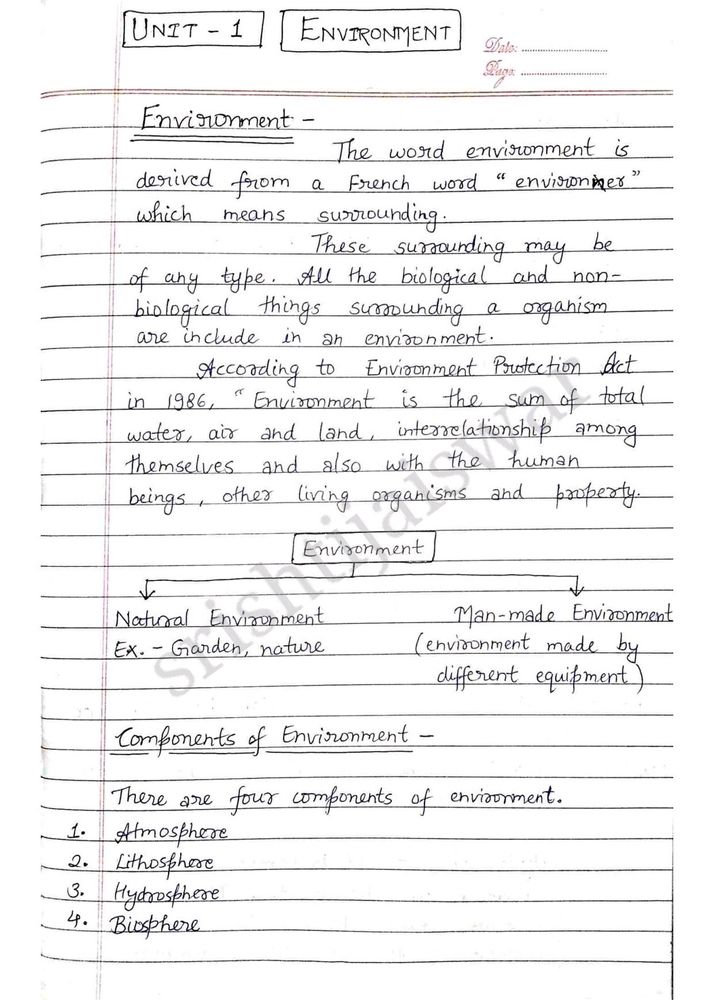 UNIT - 1 ENVIRONMENT
Date: ............................
Page: ............................
Environment -
The word environment is
derived from a French word "environner"
which means surrounding.
These surrounding may be
of any type. All the biological and non-
biological things surrounding a organism
are include in an environment.
According to Environment Protection Act
in 1986, "Environment is the sum of total
water, air and land, interrelationship among
themselves and also with the human
beings, other living organisms and property.
Environment
Natural Environment
Ex. - Garden, nature
Man-made Environment
(environment made by
different equipment)
Components of Environment -
There are four components of environment.
1. Atmosphere
2. Lithosphere
3. Hydrosphere
4. Biosphere
srishtijaiswar